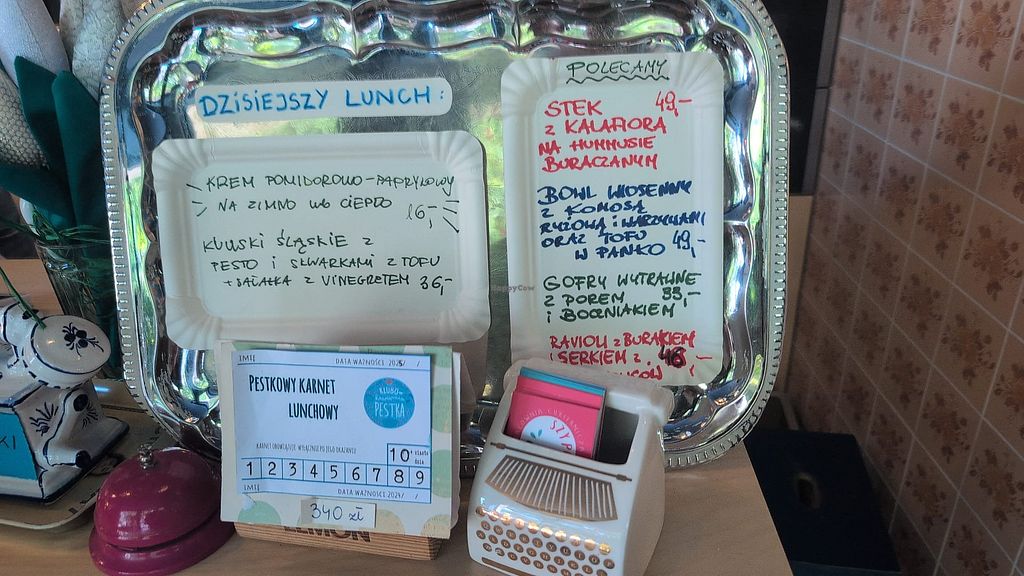 DZISIEJSZY LUNCH:
KREM POMIDOROWO-PAPRYKOWY
NA ZIMNO LUB CIEPŁO
16,-
KLUSKI ŚLĄSKIE Z
PESTO I SKWARKAMI Z TOFU
+ SAŁATKA Z VINEGRETEM 36,-
POLECAMY
STEK 49,-
Z KALAFIORA
NA HUMMUSIE
BURACZANYM
BOWL WIOSENNY
Z KOMOSĄ
RYŻOWĄ I WARZYWAMI
ORAZ TOFU
W PANKO 49,-
GOFRY WYTRAWNE
Z POREM 39,-
I BOCZNIAKIEM
RAVIOLI Z BURAKIEM
I SERKIEM Z 48,-
IMIĘ DATA WAŻNOŚCI 2025/ /
PESTKOWY KARNET
LUNCHOWY
PESTKA
KARNET OBOWIĄZUJE WYŁĄCZNIE PO JEGO OKAZANIU
10
1 2 3 4 5 6 7 8 9
IMIĘ DATA WAŻNOŚCI 2024/ /
340 zł
LEMON
KI
HappyCow